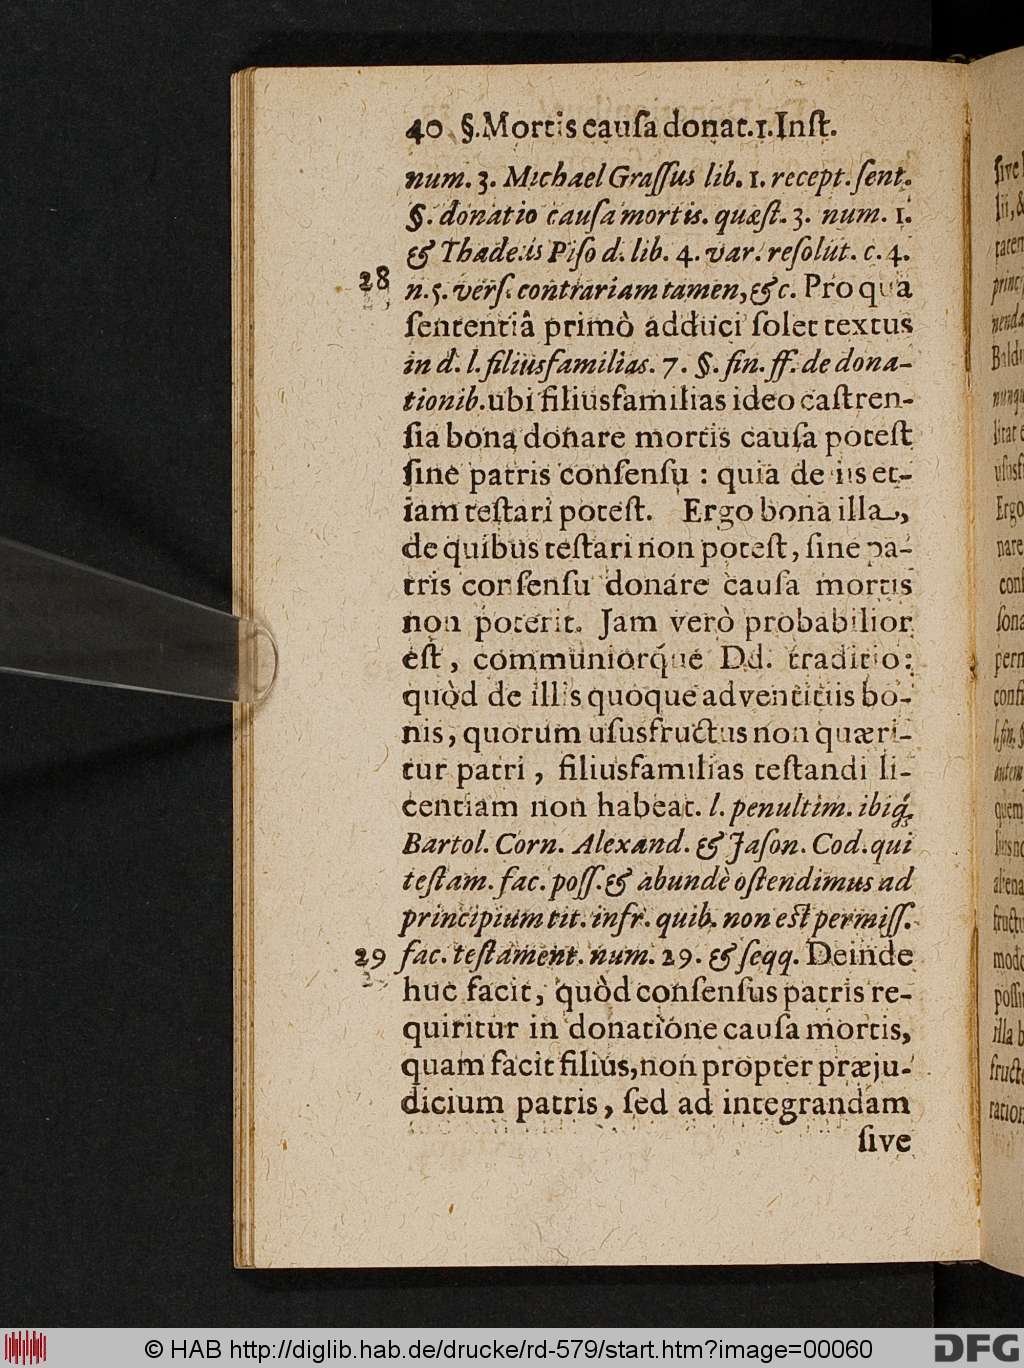 40 §. Mortis cauſa donat. 1. Inſt.
num. 3. Michael Graſſus lib. 1. recept. ſent.
§. donatio cauſa mortis. quæſt. 3. num. 1.
& Thadeus Piſo d. lib. 4. var. reſolut. c. 4.
28 n. 5. verſ. contrariam tamen, &c. Pro qua
ſententiâ primò adduci ſolet textus
in d. l. filiusfamilias. 7. §. fin. ff. de dona-
tionib. ubi filiusfamilias ideo caſtren-
ſia bona donare mortis cauſa poteſt
ſine patris conſenſu : quia de iis et-
iam teſtari poteſt. Ergo bona illa,
de quibus teſtari non poteſt, ſine pa-
tris conſenſu donare cauſa mortis
non poterit. Jam verò probabilior
eſt, communiorq́ue Dd. traditio:
quòd de illis quoque adventitiis bo-
nis, quorum uſusfructus non quæri-
tur patri, filiusfamilias teſtandi li-
centiam non habeat. l. penultim. ibiq́;
Bartol. Corn. Alexand. & Jaſon. Cod. qui
teſtam. fac. poſſ. & abundè oſtendimus ad
principium tit. infr. quib. non eſt permiſſ.
29 fac. teſtament. num. 29. & ſeqq. Deinde
huc facit, quòd conſenſus patris re-
quiritur in donatione cauſa mortis,
quam facit filius, non propter præju-
dicium patris, ſed ad integrandam
ſive
© HAB http://diglib.hab.de/drucke/rd-579/start.htm?image=00060
DFG